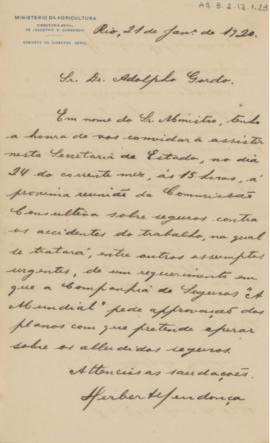 AG 3.2.12.1.23
MINISTERIO DA AGRICULTURA
DIRECTORIA GERAL
DE INDUSTRIA E COMMERCIO
GABINETE DO DIRECTOR GERAL
Rio, 21 de Janº. de 1920.
Sr. Dr. Adolpho Gordo.
Em nome do Sr. Ministro, tenho
a honra de vos convidar á assistir
nesta Secretaria de Estado, no dia
24 do corrente mez, ás 15 horas, á
proxima reunião da Commissão
Consultiva sobre seguros contra
os accidentes do trabalho, na qual
se tratará, entre outros assumptos
urgentes, de um requerimento em
que a Companhia de Seguros "A
Mundial" pede approvação dos
planos com que pretende operar
sobre os alludidos seguros.
Attenciosas saudações.
Herbert Mendonça